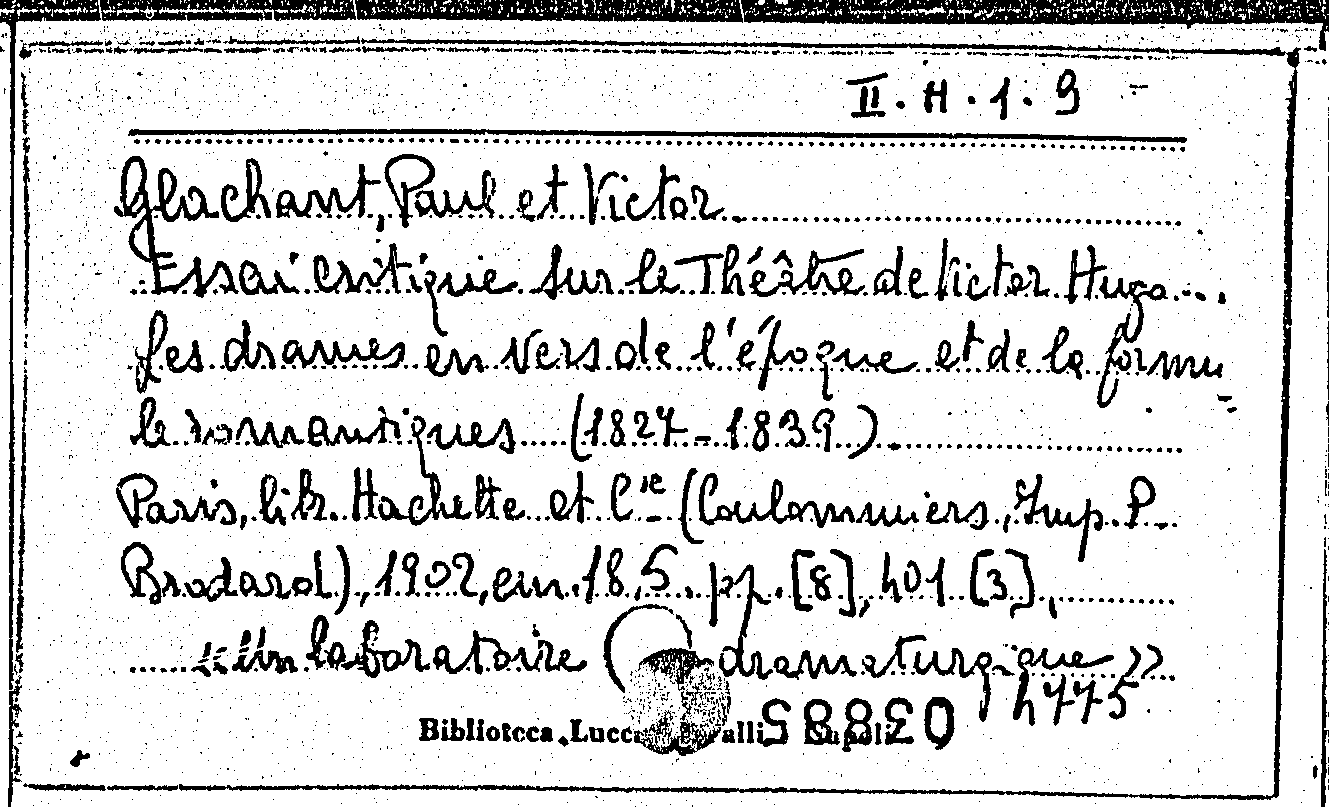 II. H. 1. 9
Glachant, Paul et Victor.
Essai critique sur le Théâtre de Victor Hugo...
Les drames en vers de l'époque et de la formu-
le romantiques (1827-1839).
Paris, libr. Hachette et C.ie (Coulommiers, Imp. P.
Brodard), 1902, cm. 18,5. pp. [8], 401 [3],
«Un laboratoire dramaturgique»
4775
Biblioteca
03885